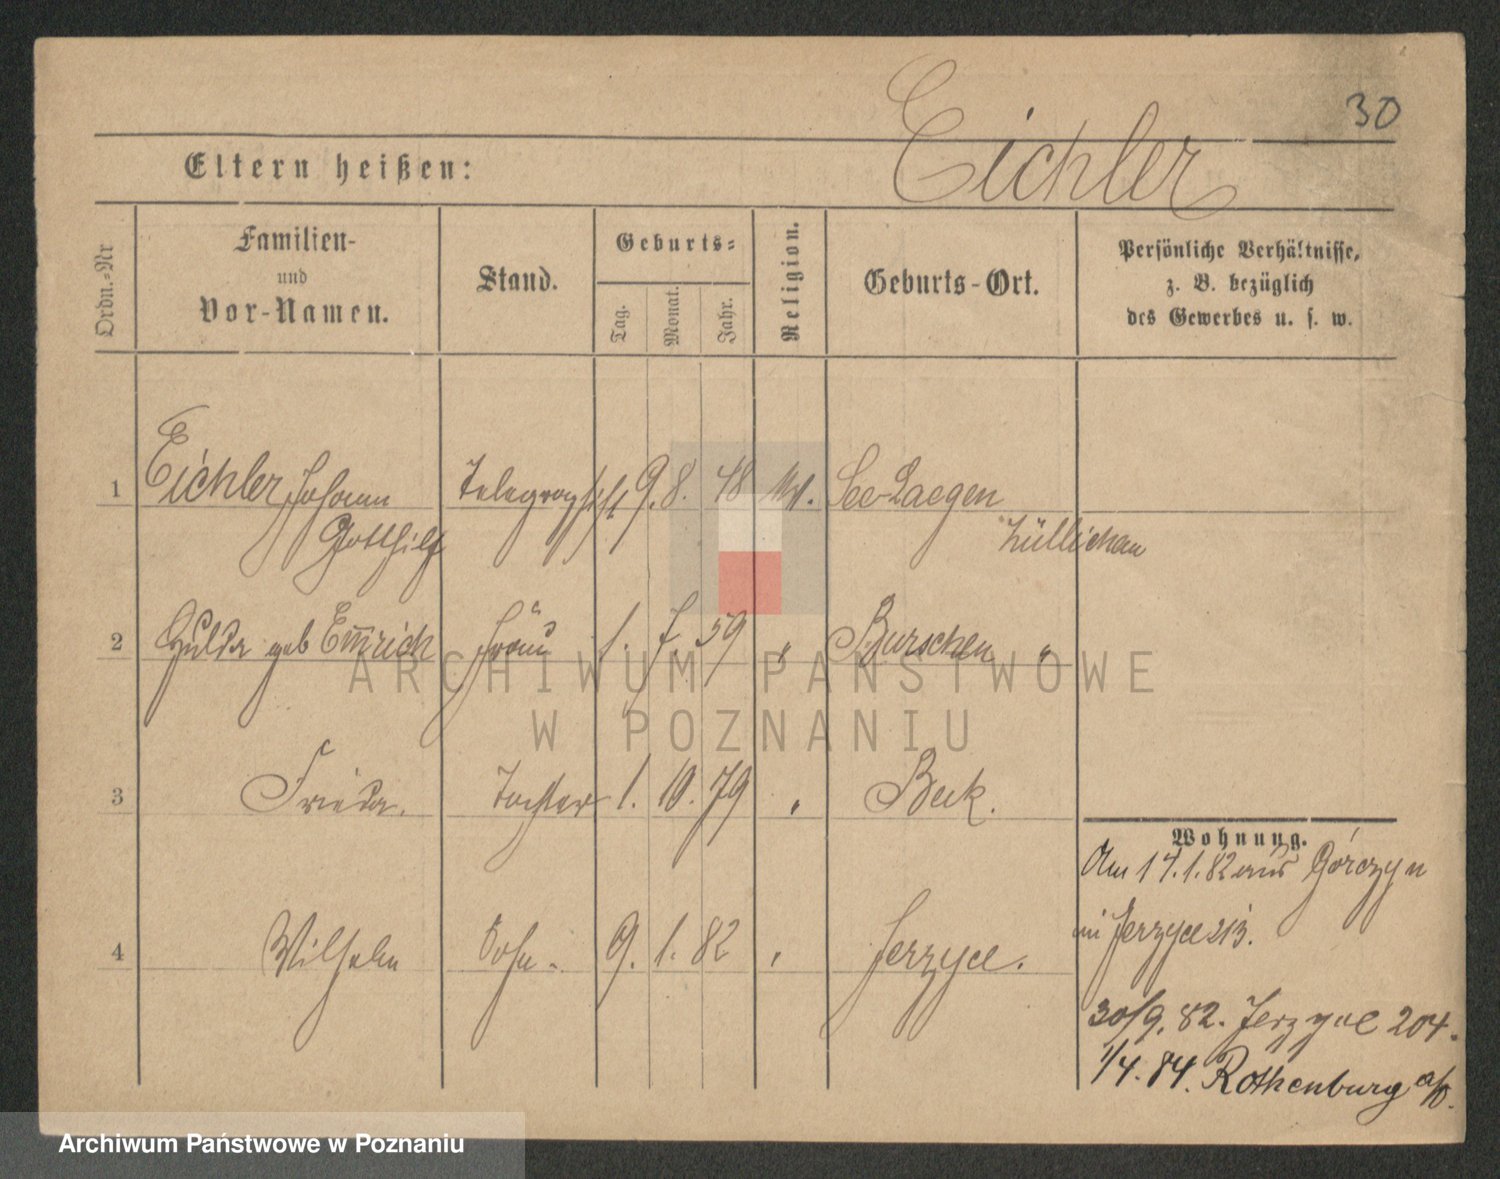 30
Eltern heißen: Eichler
Ordn.-Nr
Familien-
und
Vor-Namen.
Stand.
Geburts-
Tag.
Monat.
Jahr.
Religion.
Geburts-Ort.
Persönliche Verhältnisse,
z. B. bezüglich
des Gewerbes u. s. w.
1 Eichler Johann Telegraphist 9. 8. 48 See-Laegen
Gotthilf Züllichau
2 Hulda geb Emrich Frau 1. 7. 59 " Burschen "
3 Frieda. Tochter 1. 10. 79 " Beek.
4 Wilhelm Sohn 9. 1. 82 " Jerzyce.
Wohnung.
Am 14.1.82 aus Górczyn
in Jerzyce 213.
30/9. 82. Jerzyce 204.
1/4. 84. Rothenburg a/O.
ARCHIWUM PAŃSTWOWE
W POZNANIU
Archiwum Państwowe w Poznaniu